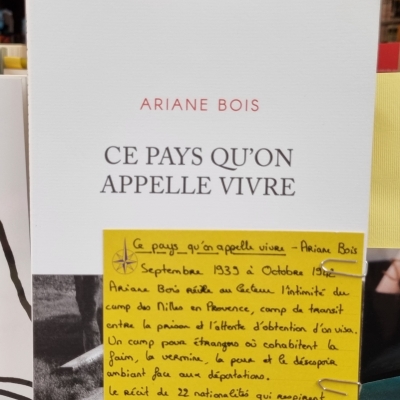 ARIANE BOIS
CE PAYS QU'ON
APPELLE VIVRE
Ce pays qu'on appelle vivre - Ariane Bois
Septembre 1939 à Octobre 1942
Ariane Bois révèle au lecteur l'intimité du
camp des Milles en Provence, camp de transit
entre la prison et l'attente d'obtention d'un visa.
Un camp pour étrangers où cohabitent la
faim, la vermine, la peur et le désespoir
ambiant face aux déportations.
Le récit de 22 nationalités qui respirent